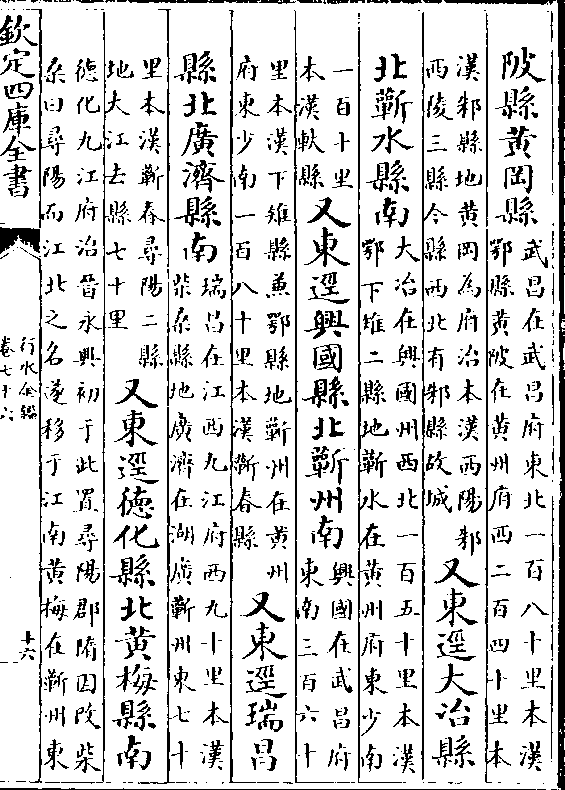 陂縣黃岡縣
武昌在武昌府東北一百八十里本漢
鄂縣黃陂在黃州府西二百四十里本
漢邾縣地黃岡為府治本漢西陽邾
西陵三縣今縣西北有邾縣故城
又東逕大冶縣
北蘄水縣南
大冶在興國州西北一百五十里本漢
鄂下雉二縣地蘄水在黃州府東少南
一百十里
本漢軑縣
又東逕興國縣北蘄州南
興國在武昌府
東南三百六十
里本漢下雉縣兼鄂縣地蘄州在黃州
府東少南一百八十里本漢蘄春縣
又東逕瑞昌
縣北廣濟縣南
瑞昌在江西九江府西九十里本漢
柴桑縣地廣濟在湖廣蘄州東七十
里本漢蘄春尋陽二縣
地大江去縣七十里
又東逕德化縣北黃梅縣南
德化九江府治晉永興初于此置尋陽郡隋因改柴
桑曰尋陽而江北之名遂移于江南黃梅在蘄州東
欽定四庫全書
行水金鑑
卷七十六
十六